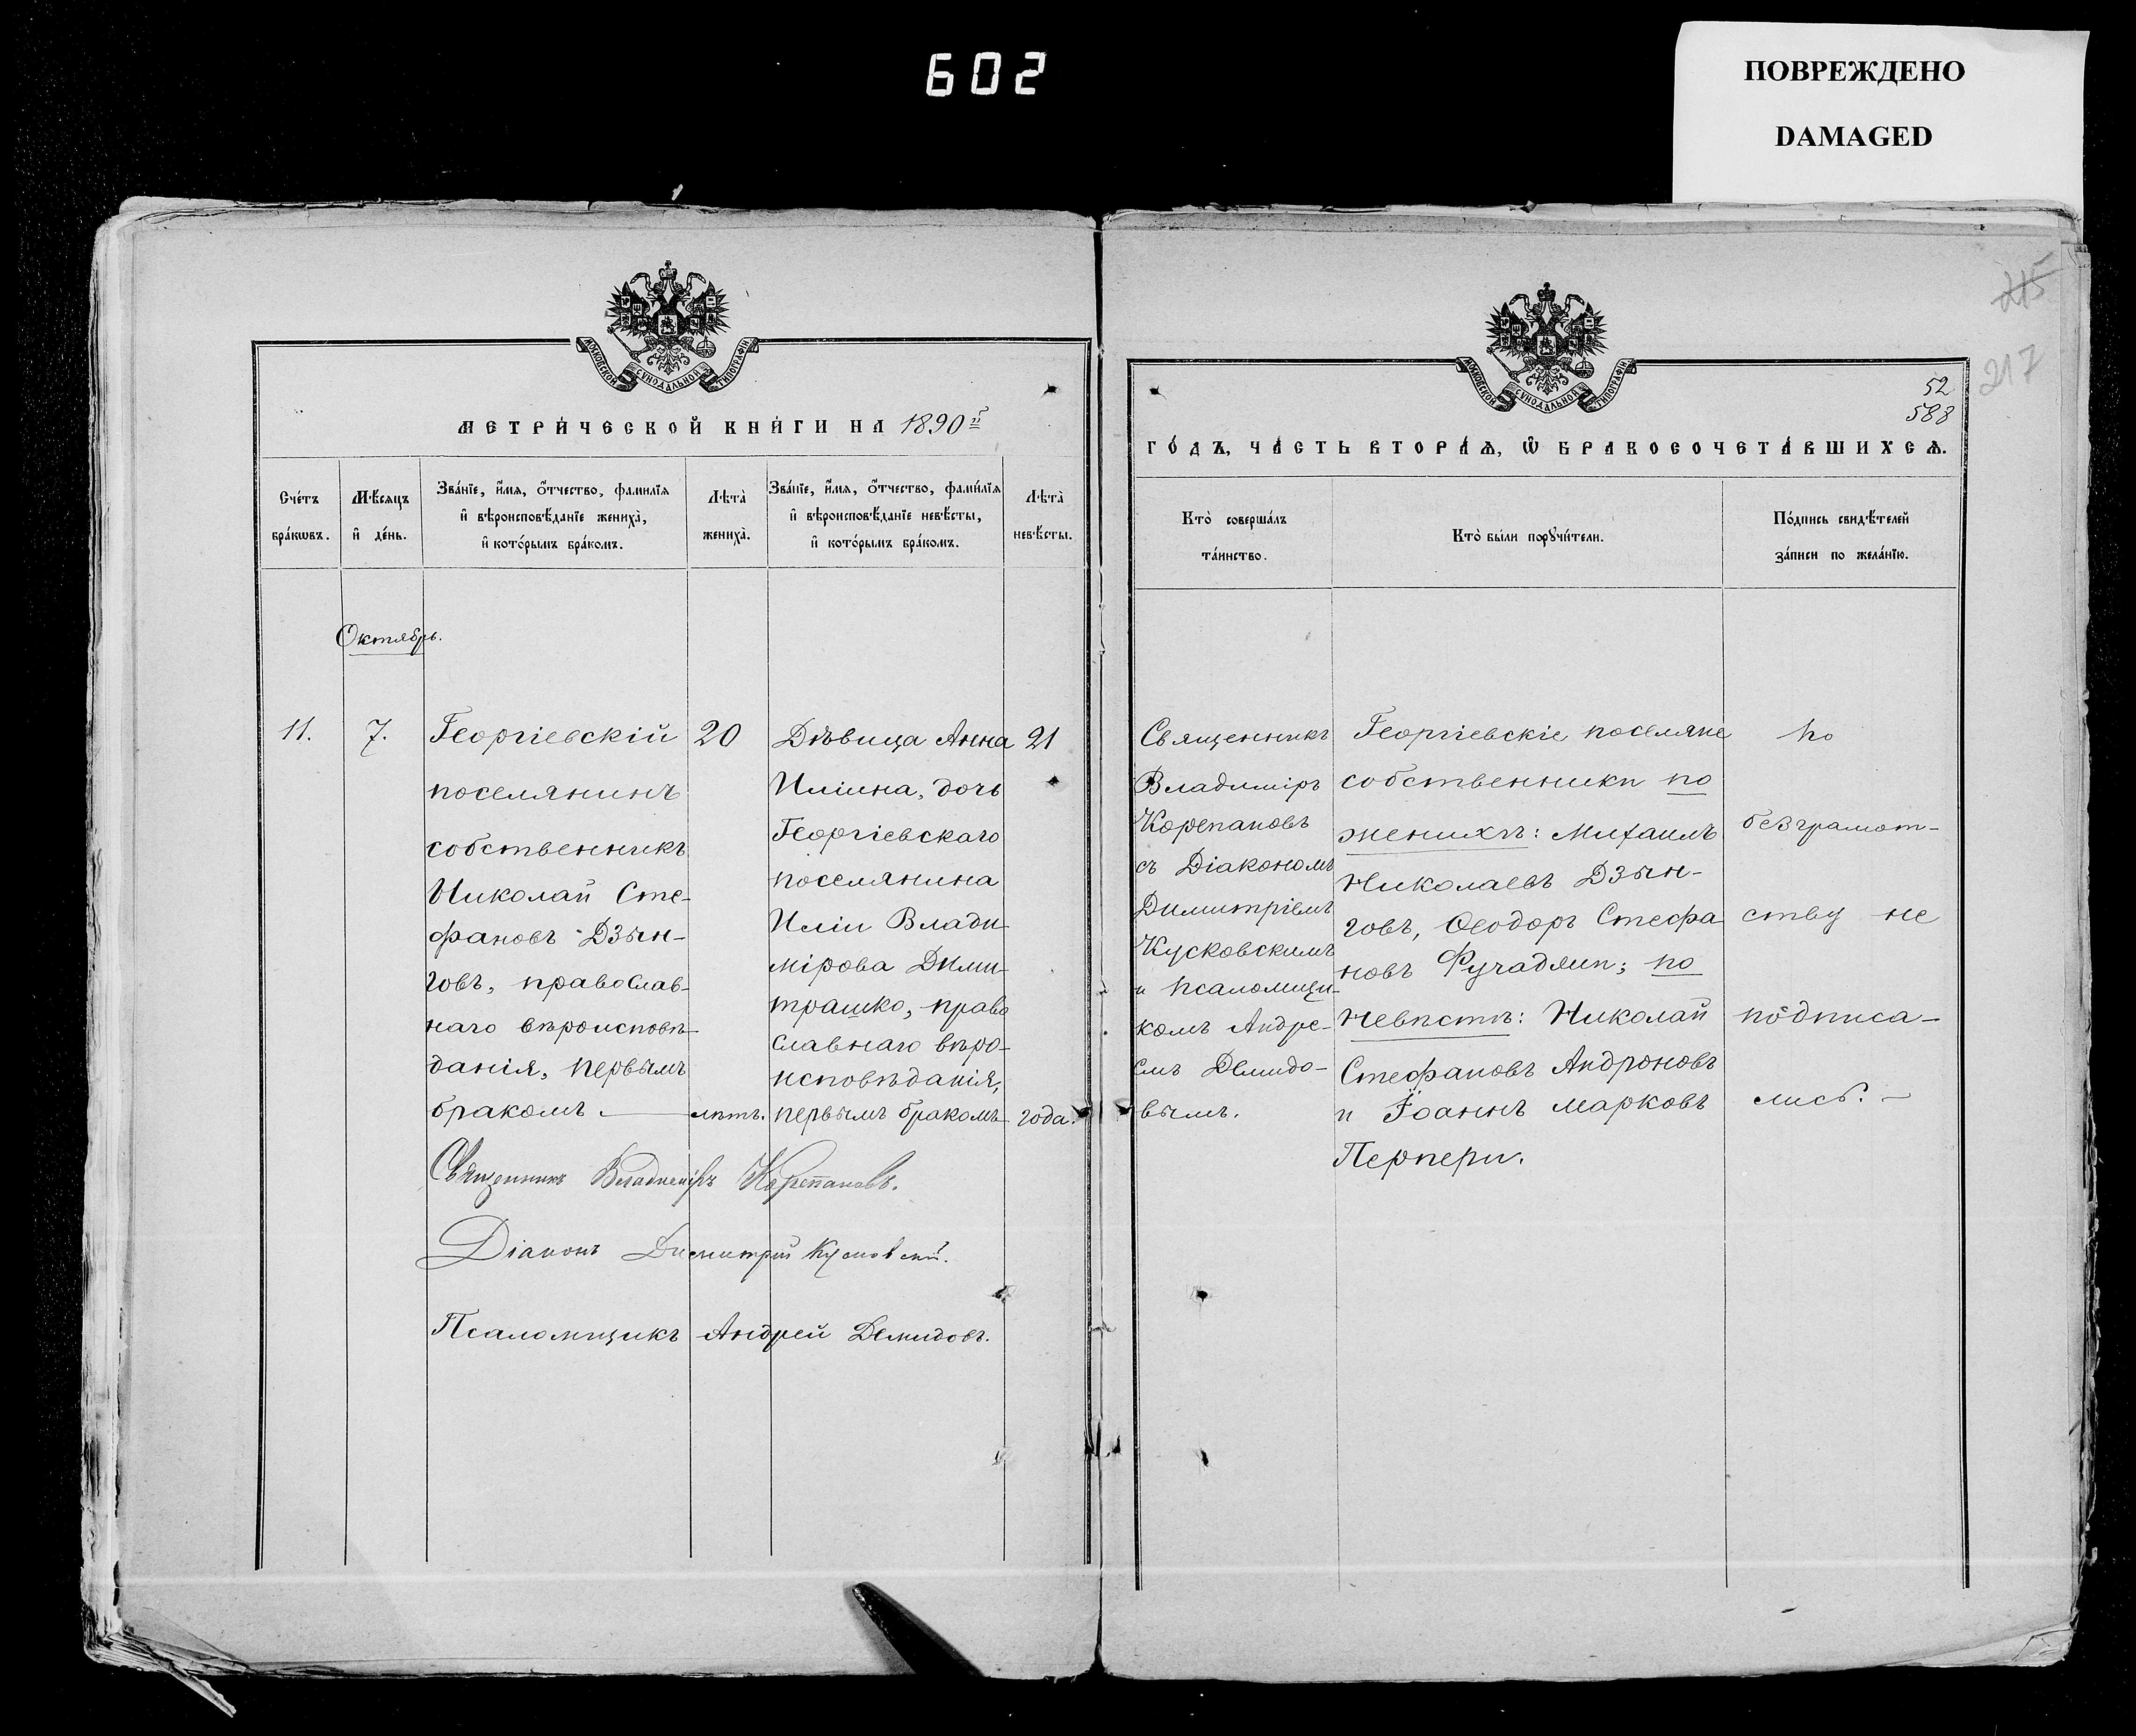 602
ПОВРЕЖДЕНО
DAMAGED
МОСКОВСКОЙ СѴНОДАЛЬНОЙ ТИПОГРАФІИ
МЕТРИ́ЧЕСКОЙ КНИ́ГИ НА 1890
Сче́тъ бра́кωвъ.
Мѣ́сяцъ и҆ де́нь.
Зва́нїе, и҆́мѧ, ѻ҆́тчество, фамилїѧ
и҆ вѣроисповѣ́данїе жениха̀,
и҆ кото́рымъ бра́комъ.
Лѣта̀ жениха̀.
Зва́нїе, и҆́мѧ, ѻ҆́тчество, фами́лїѧ
и҆ вѣроисповѣ́данїе невѣ́сты,
и҆ кото́рымъ бра́комъ.
Лѣта̀ невѣ́сты.
Октябрь.
11.
7.
Георгіевскій
поселянинъ
собственникъ
Николай Сте-
фановъ Дзын-
говъ, православ-
наго вѣроисповѣ-
данія, первымъ
бракомъ
20
лѣтъ.
Дѣвица Анна
Иліина, дочь
Георгіевскаго
поселянина
Иліи Влади-
мірова Дими-
трашко, право
славнаго вѣро-
исповѣданія,
первымъ бракомъ
21
года.
Священникъ Владиміръ Корепановъ.
Діаконъ Димитрій Кусковскій.
Псаломщикъ Андрей Демидовъ.
215
217
МОСКОВСКОЙ СѴНОДАЛЬНОЙ ТИПОГРАФІИ
52
588
ГО́ДЪ, ЧА́СТЬ ВТОРА́Ѧ, Ѡ҆ БРАКОСОЧЕТА́ВШИХСѦ.
Кто̀ соверша́лъ
та́инство.
Кто̀ бы́ли порꙋчи́тели.
По́дпись свидѣ́телей
за́писи по жела́нїю.
Священникъ
Владиміръ
Корепановъ
съ Діакономъ
Димитріемъ
Кусковскимъ
и псаломщи-
комъ Андре-
емъ Демидо-
вымъ.
Георгіевскіе поселяне
собственники по
женихѣ: Михаилъ
Николаевъ Дзын-
говъ, Ѳеодоръ Стефа
новъ Фучаджи; по
невѣстѣ: Николай
Стефановъ Андроновъ
и Іоаннъ Марковъ
Перпери.
по
безграмот-
ству не
подписа-
лись. —